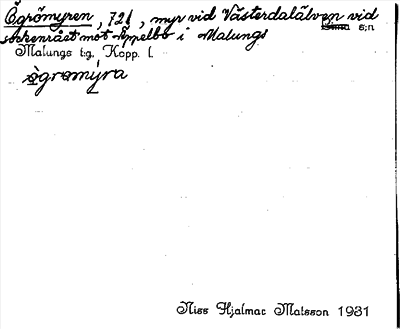 Ögrömyren, 721, myr vid Västerdalälven vid
sockenrået mot Äppelbo i Malungs s:n
Malungs t:g. Kopp. l.
ögromýra
Niss Hjalmar Matsson 1931